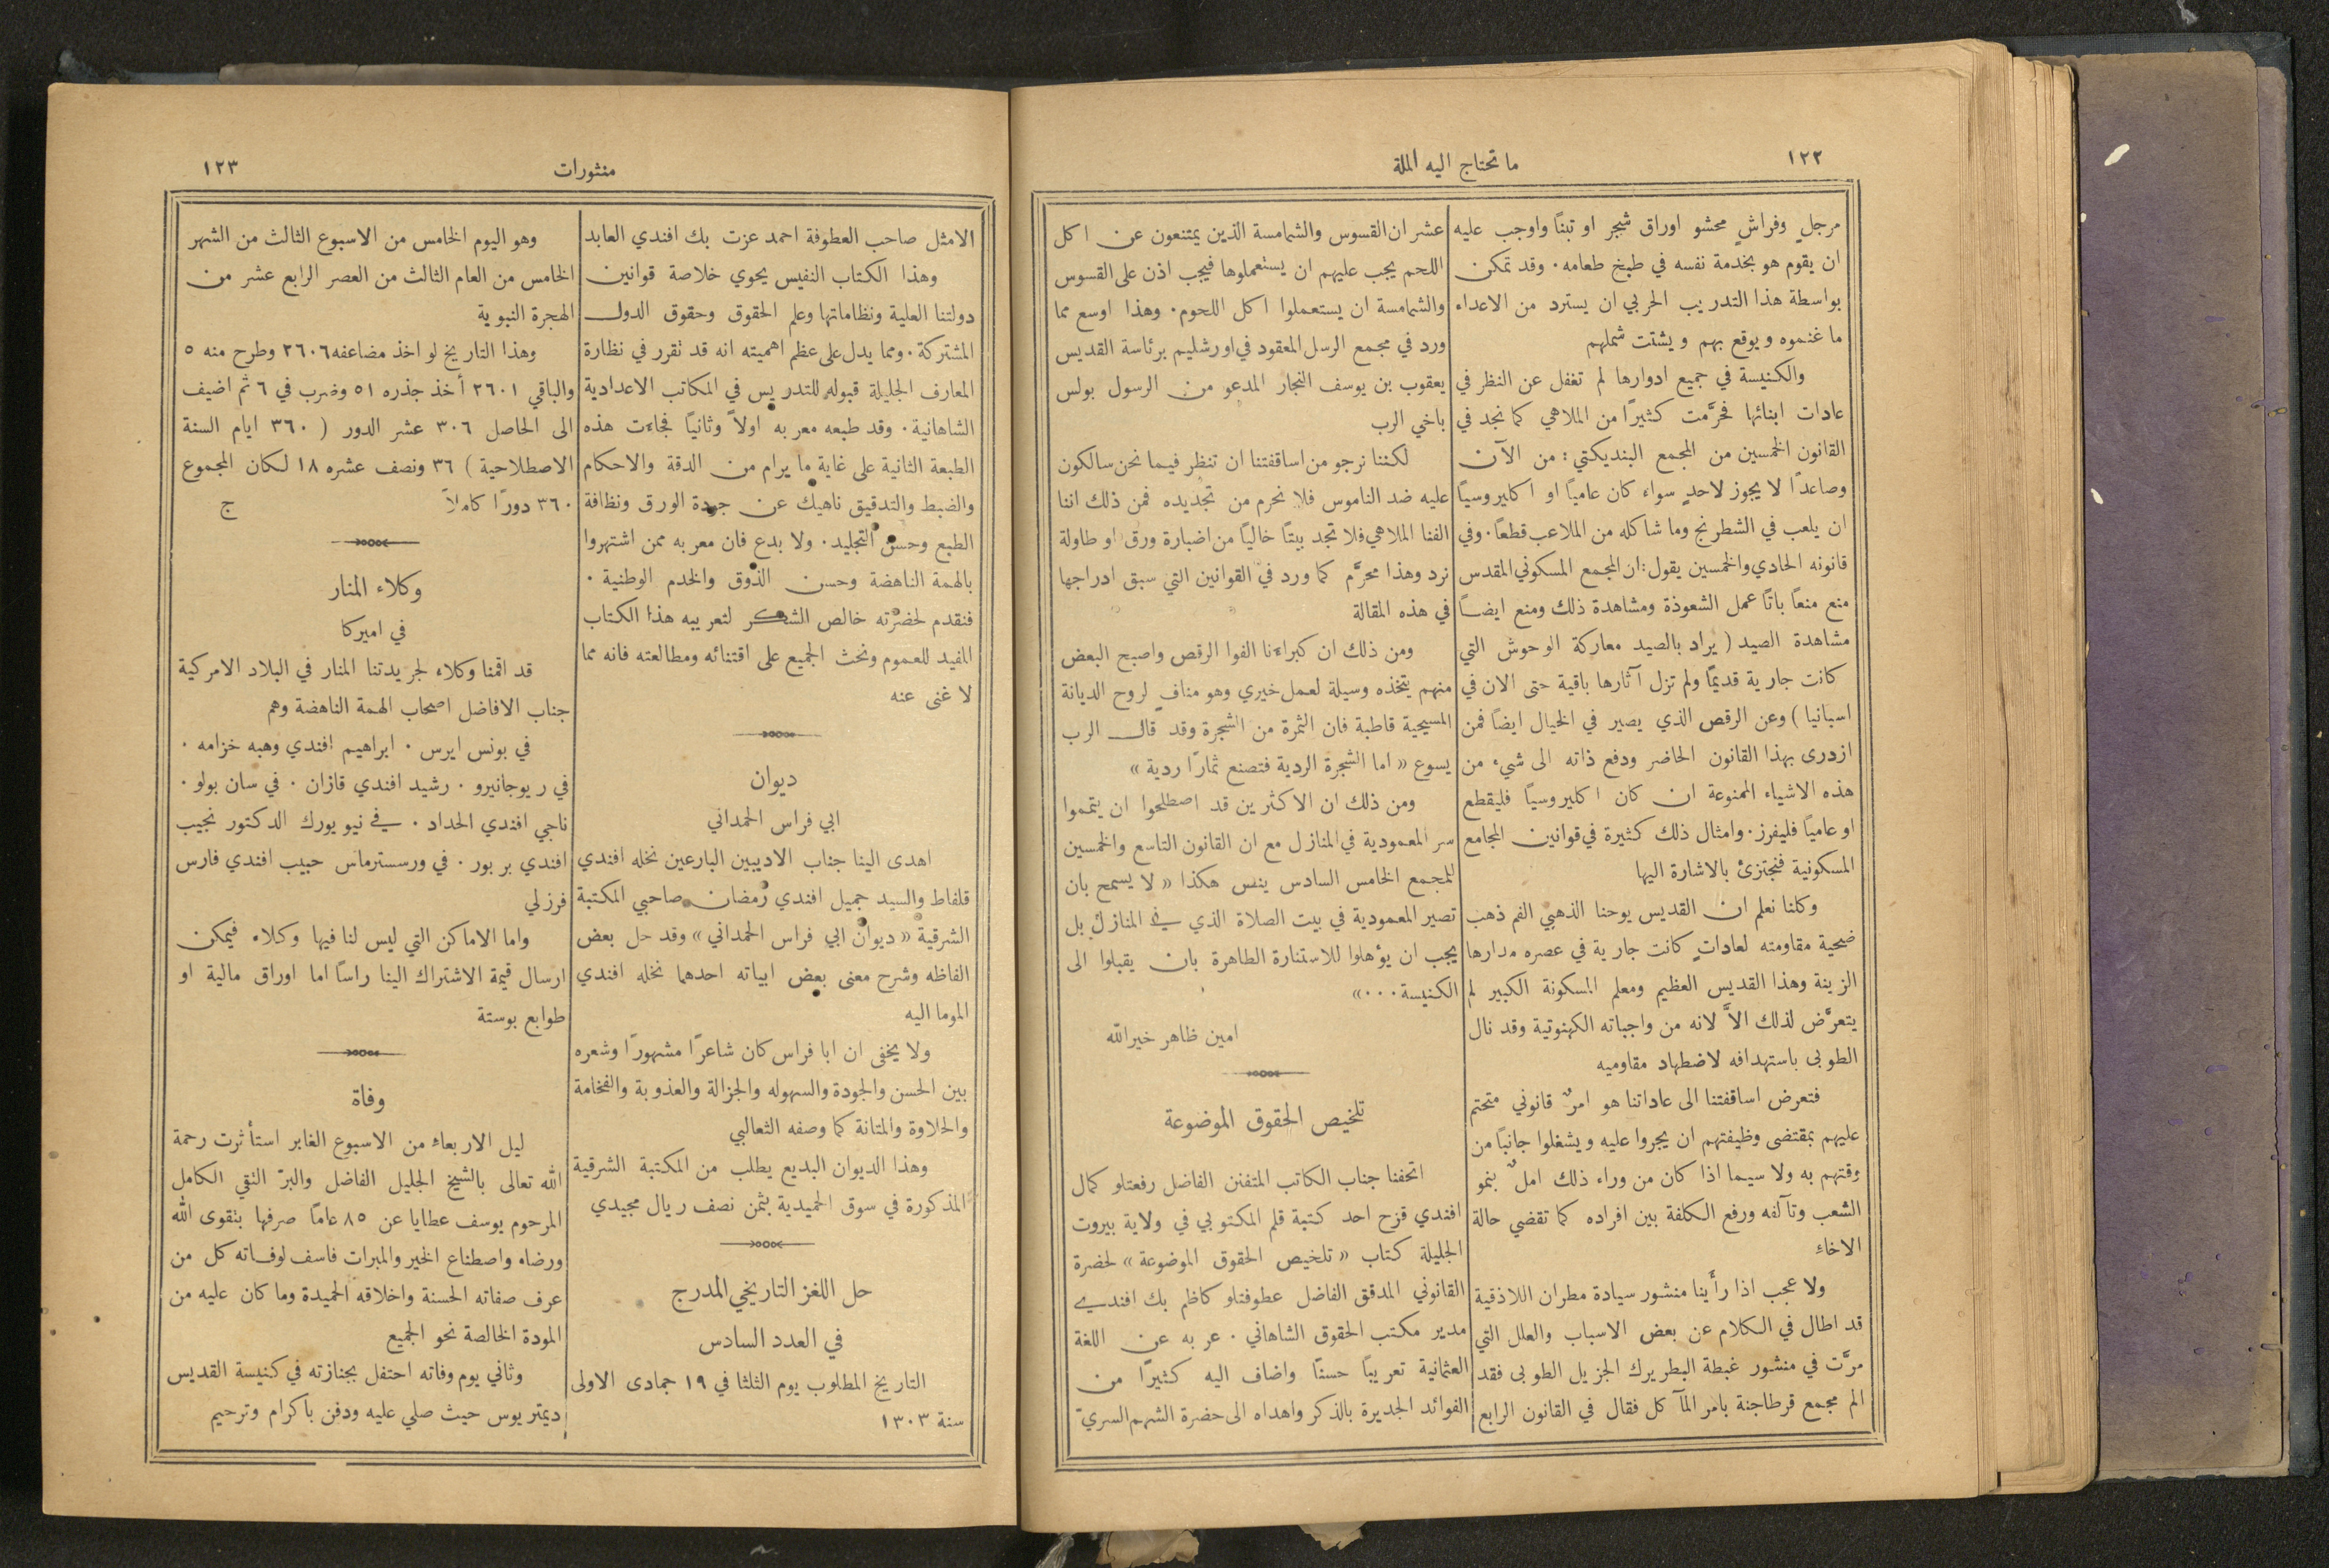 ١٢٢
ما تحتاج اليه الملة
مرجلٍ وفراشٍ محشو اوراق شجر او تبنًا واوجب عليه
ان يقوم هو بخدمة نفسه في طبخ طعامه ۰ وقد تمكن
بواسطة هذا التدريب الحربي ان يسترد من الاعداء
ما غنموه ويوقع بهم ويشتت شملهم
والكنيسة في جميع ادوارها لم تغفل عن النظر في
عادات ابنائها فحرَّمت كثيرًا من الملاهي كما نجد في
القانون الخمسين من المجمع البنديكتي : من الآن
وصاعدًا لا يجوز لاحدٍ سواء كان عاميًا او اكليروسيًا
ان يلعب في الشطرنج وما شاكله من الملاعب قطعًا ۰ وفي
قانونه الحادي والخمسين يقول : ان المجمع المسكوني المقدس
منع منعًا باتًا عمل الشعوذة ومشاهدة ذلك ومنع ايضًا
مشاهدة الصيد ( يراد بالصيد معاركة الوحوش التي
كانت جارية قديمًا ولم تزل آثارها باقية حتى الان في
اسبانيا ) وعن الرقص الذي يصير في الخيال ايضًا فمن
ازدرى بهذا القانون الحاضر ودفع ذاته الى شيء من
هذه الاشياء الممنوعة ان كان اكليروسيًا فليقطع
او عاميًا فليفرز ۰ وامثال ذلك كثيرة في قوانين المجامع
المسكونية فنجتزئ بالاشارة اليها
وكلنا نعلم ان القديس يوحنا الذهبي الفم ذهب
ضحية مقاومته لعاداتٍ كانت جارية في عصره مدارها
الزينة وهذا القديس العظيم ومعلم المسكونة الكبير لم
يتعرَّض لذلك الاَّ لانه من واجباته الكهنوتية وقد نال
الطوبى باستهدافه لاضطهاد مقاوميه
فتعرض اساقفتنا الى عاداتنا هو امرٌ قانوني متحتم
عليهم بمقتضى وظيفتهم ان يجروا عليه ويشغلوا جانبًا من
وقتهم به ولا سيما اذا كان من وراء ذلك املٌ بنمو
الشعب وتآلفه ورفع الكلفة بين افراده كما تقضي حالة
الاخاء
ولا عجب اذا رأينا منشور سيادة مطران اللاذقية
قد اطال في الكلام عن بعض الاسباب والعلل التي
مرَّت في منشور غبطة البطريرك الجزيل الطوبى فقد
الم مجمع قرطاجنة بامر المآكل فقال في القانون الرابع
عشر ان القسوس والشمامسة الذين يمتنعون عن اكل
اللحم يجب عليهم ان يستعملوها فيجب اذن على القسوس
والشمامسة ان يستعملوا اكل اللحوم ۰ وهذا اوسع مما
ورد في مجمع الرسل المعقود في اورشليم برئاسة القديس
يعقوب بن يوسف النجار المدعو من الرسول بولس
باخي الرب
لكننا نرجو من اساقفتنا ان تنظر فيما نحن سالكون
عليه ضد الناموس فلا نحرم من تجديده فمن ذلك اننا
الفنا الملاهي فلا تجد بيتًا خاليًا من اضبارة ورق او طاولة
نرد وهذا محرَّم كما ورد في القوانين التي سبق ادراجها
في هذه المقالة
ومن ذلك ان كبراءنا الفوا الرقص واصبح البعض
منهم يتخذه وسيلة لعمل خيري وهو منافٍ لروح الديانة
المسيحية قاطبة فان الثمرة من الشجرة وقد قال الرب
يسوع « اما الشجرة الردية فتصنع ثمارًا ردية »
ومن ذلك ان الاكثرين قد اصطلحوا ان يتمموا
سر المعمودية في المنازل مع ان القانون التاسع والخمسين
للمجمع الخامس السادس ينص هكذا « لا يسمح بان
تصير المعمودية في بيت الصلاة الذي في المنازل بل
يجب ان يؤهلوا للاستنارة الطاهرة بان يقبلوا الى
الكنيسة ۰۰۰ »
امين ظاهر خيرالله
تلخيص الحقوق الموضوعة
اتحفنا جناب الكاتب المتفنن الفاضل رفعتلو كمال
افندي قزح احد كتبة قلم المكتوبي في ولاية بيروت
الجليلة كتاب « تلخيص الحقوق الموضوعة » لحضرة
القانوني المدقق الفاضل عطوفتلو كاظم بك افندي
مدير مكتب الحقوق الشاهاني ۰ عربه عن اللغة
العثمانية تعريبًا حسنًا واضاف اليه كثيرًا من
الفوائد الجديرة بالذكر واهداه الى حضرة الشهم السريّ
منثورات
١٢٣
الامثل صاحب العطوفة احمد عزت بك افندي العابد
وهذا الكتاب النفيس يحوي خلاصة قوانين
دولتنا العلية ونظاماتها وعلم الحقوق وحقوق الدول
المشتركة ۰ ومما يدل على عظم اهميته انه قد تقرر في نظارة
المعارف الجليلة قبوله للتدريس في المكاتب الاعدادية
الشاهانية ۰ وقد طبعه معربه اولاً وثانيًا فجاءت هذه
الطبعة الثانية على غاية ما يرام من الدقة والاحكام
والضبط والتدقيق ناهيك عن جودة الورق ونظافة
الطبع وحسن التجليد ۰ ولا بدع فان معربه ممن اشتهروا
بالهمة الناهضة وحسن الذوق والخدم الوطنية ۰
فنقدم لحضرته خالص الشكر لتعريبه هذا الكتاب
المفيد للعموم ونحث الجميع على اقتنائه ومطالعته فانه مما
لا غنى عنه
ديوان
ابي فراس الحمداني
اهدى الينا جناب الاديبين البارعين نخله افندي
قلفاط والسيد جميل افندي رمضان صاحبي المكتبة
الشرقية « ديوان ابي فراس الحمداني » وقد حل بعض
الفاظه وشرح معنى بعض ابياته احدهما نخله افندي
الموما اليه
ولا يخفى ان ابا فراس كان شاعرًا مشهورًا وشعره
بين الحسن والجودة والسهوله والجزالة والعذوبة والفخامة
والحلاوة والمتانة كما وصفه الثعالبي
وهذا الديوان البديع يطلب من المكتبة الشرقية
المذكورة في سوق الحميدية بثمن نصف ريال مجيدي
حل اللغز التاريخي المدرج
في العدد السادس
التاريخ المطلوب يوم الثلثا في ١٩ جمادى الاولى
سنة ١٣٠٣
وهو اليوم الخامس من الاسبوع الثالث من الشهر
الخامس من العام الثالث من العصر الرابع عشر من
الهجرة النبوية
وهذا التاريخ لو اخذ مضاعفه ٢٦٠٦ وطرح منه ٥
والباقي ٢٦٠١ أخذ جذره ٥١ وضرب في ٦ ثم اضيف
الى الحاصل ٣٠٦ عشر الدور ( ٣٦٠ ايام السنة
الاصطلاحية ) ٣٦ ونصف عشره ١٨ لكان المجموع
٣٦٠ دورًا كاملاً ج
وكلاء المنار
في اميركا
قد اقمنا وكلاء لجريدتنا المنار في البلاد الامركية
جناب الافاضل اصحاب الهمة الناهضة وهم
في بونس ايرس ۰ ابراهيم افندي وهبه خزامه ۰
في ريوجانيرو ۰ رشيد افندي قازان ۰ في سان بولو ۰
ناجي افندي الحداد ۰ في نيو يورك الدكتور نجيب
افندي بربور ۰ في ورسسترماس حبيب افندي فارس
فرزلي
واما الاماكن التي ليس لنا فيها وكلاء فيمكن
ارسال قيمة الاشتراك الينا راسًا اما اوراق مالية او
طوابع بوستة
وفاة
ليل الاربعاء من الاسبوع الغابر استأثرت رحمة
الله تعالى بالشيخ الجليل الفاضل والبرّ التقي الكامل
المرحوم يوسف عطايا عن ٨٥ عامًا صرفها بتقوى الله
ورضاه واصطناع الخير والمبرات فاسف لوفاته كل من
عرف صفاته الحسنة واخلاقه الحميدة وما كان عليه من
المودة الخالصة نحو الجميع
وثاني يوم وفاته احتفل بجنازته في كنيسة القديس
ديمتريوس حيث صلي عليه ودفن باكرام وترحيم